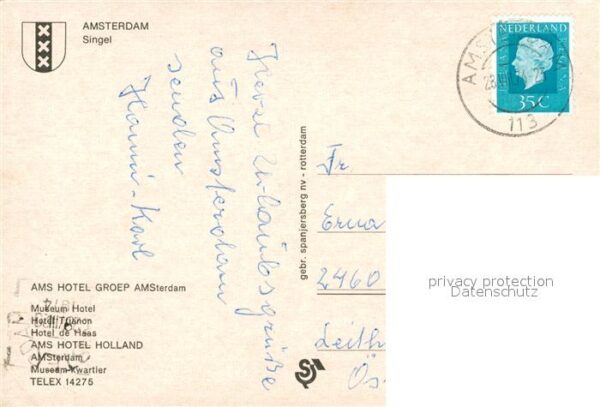 AMSTERDAM
Singel
NEDERLAND
35 C
113
Urlaubsgrüße
aus Amsterdam
senden
Hanni - Karl
gebr. spanjersberg nv - rotterdam
Fr.
Erna
2460
Leith
Ös
privacy protection
Datenschutz
AMS HOTEL GROEP AMSterdam
Museum Hotel
Hotel Trianon
Hotel de Haas
AMS HOTEL HOLLAND
AMSterdam
Museum Kwartier
TELEX 14275